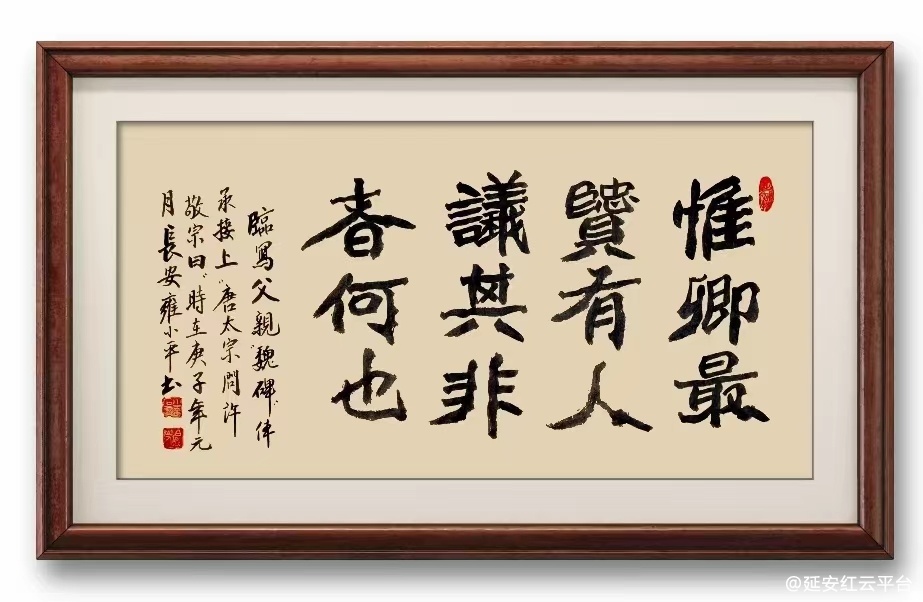 惟卿最
賢有人
議其非
者何也
臨寫父親"魏碑"体
承接上"唐太宗問許
敬宗曰"時在庚子年元
月長安雍小平书
@延安红云平台